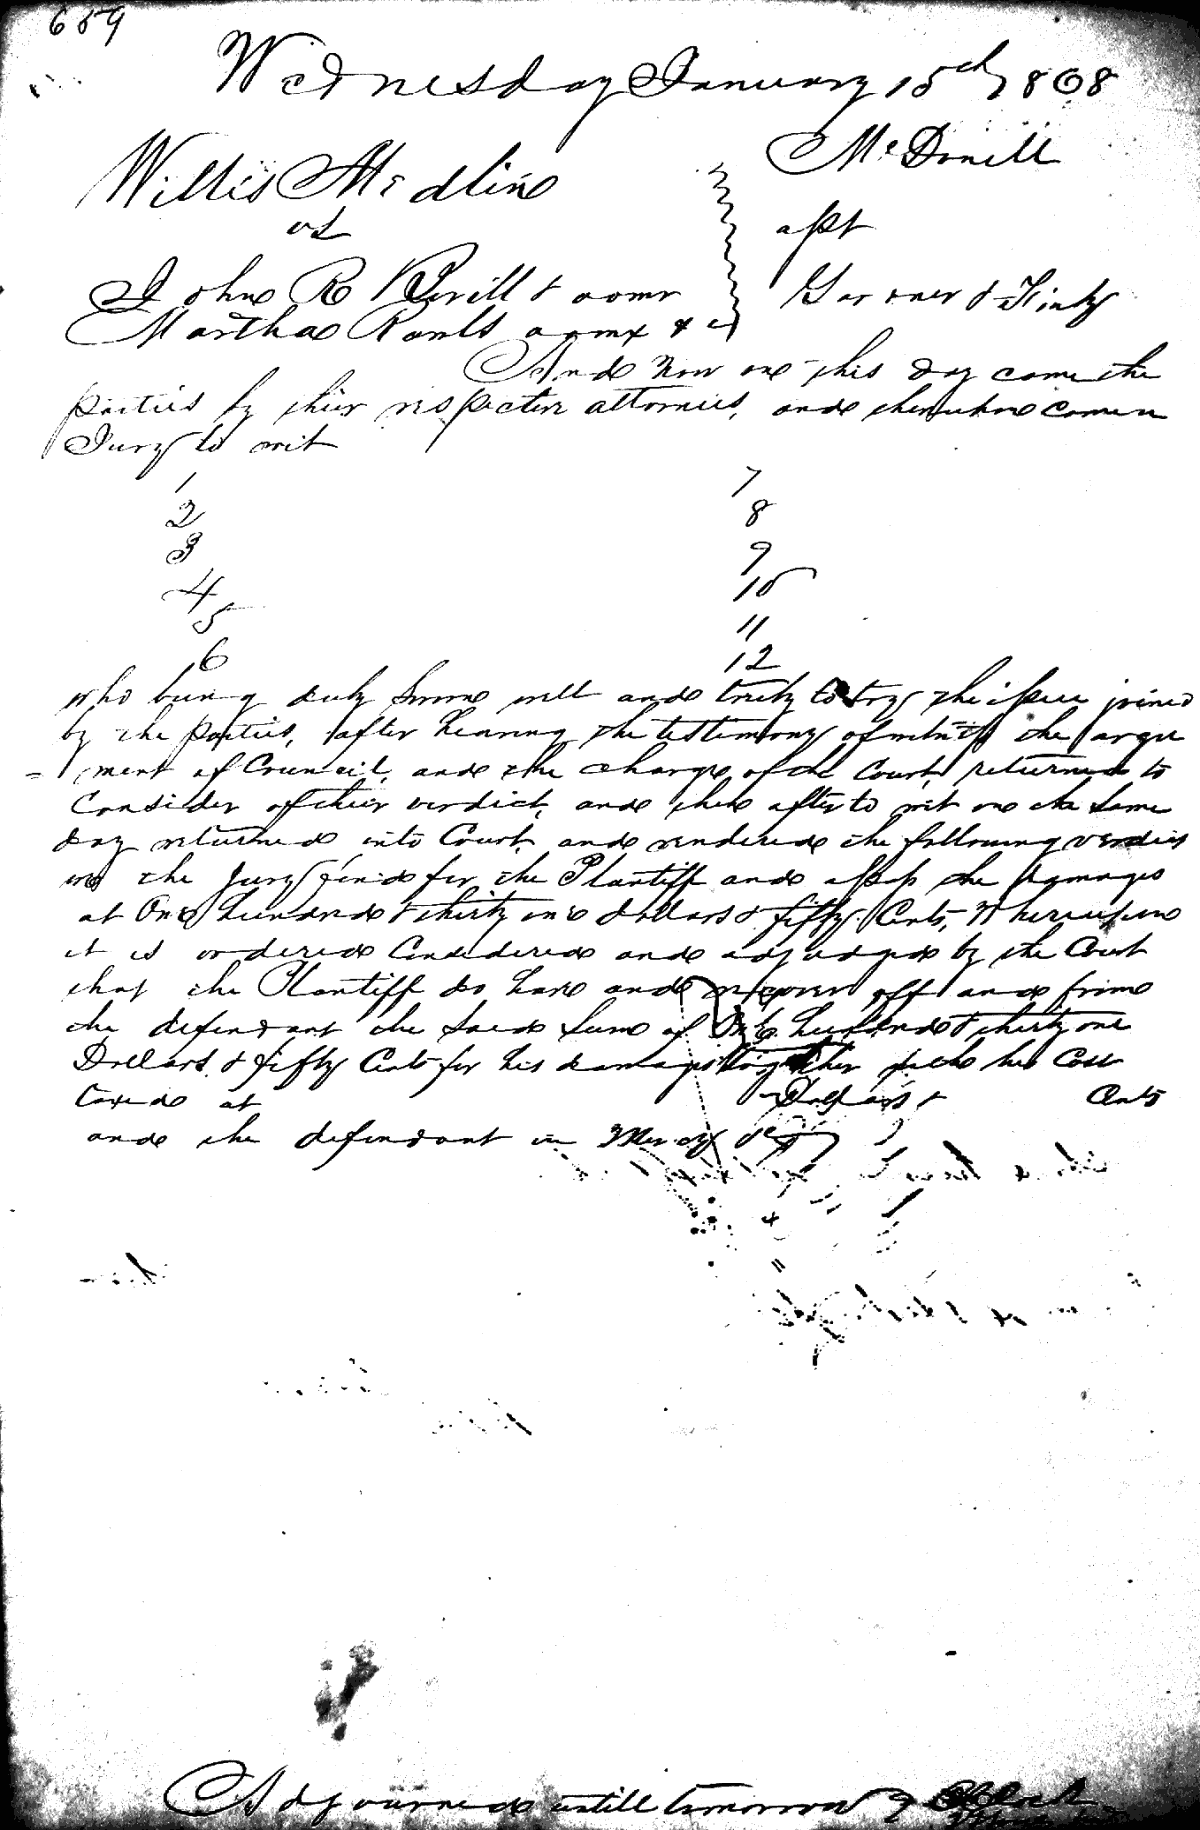 659
Wednesday January 15th 1868
Willis Medline
vs
John R
Martha Rauls admx & c
McDonell
asst
& Kirtz
And now on this day come the
parties by thier respective attornies, and thereupon come a
Jury to wit
1
2
3
4
5
6
7
8
9
10
11
12
who being duly sworn well and truly to try the issue joined
by the parties, after hearing the testimony of witness the argu
= ment of Counceil, and the charge of the Court, returned to
Consider of their verdict, and there after to wit on the same
day returned into Court, and rendered the following verdict
we the Jury find for the Plantiff and assess the damages
at One hundred & thirty one dollars & fifty Cents, Whereupon
it is ordered Considered and adjudged by the Court
that the Plantiff do have and recover off and from
the defendant the said sum of One hundred & thirty one
Dollars & fifty Cents for his damages together with his Cost
taxed at Dollars & Cents
and the defendant in Mercy &c
Adjourned untill tomorrow 9 OClock